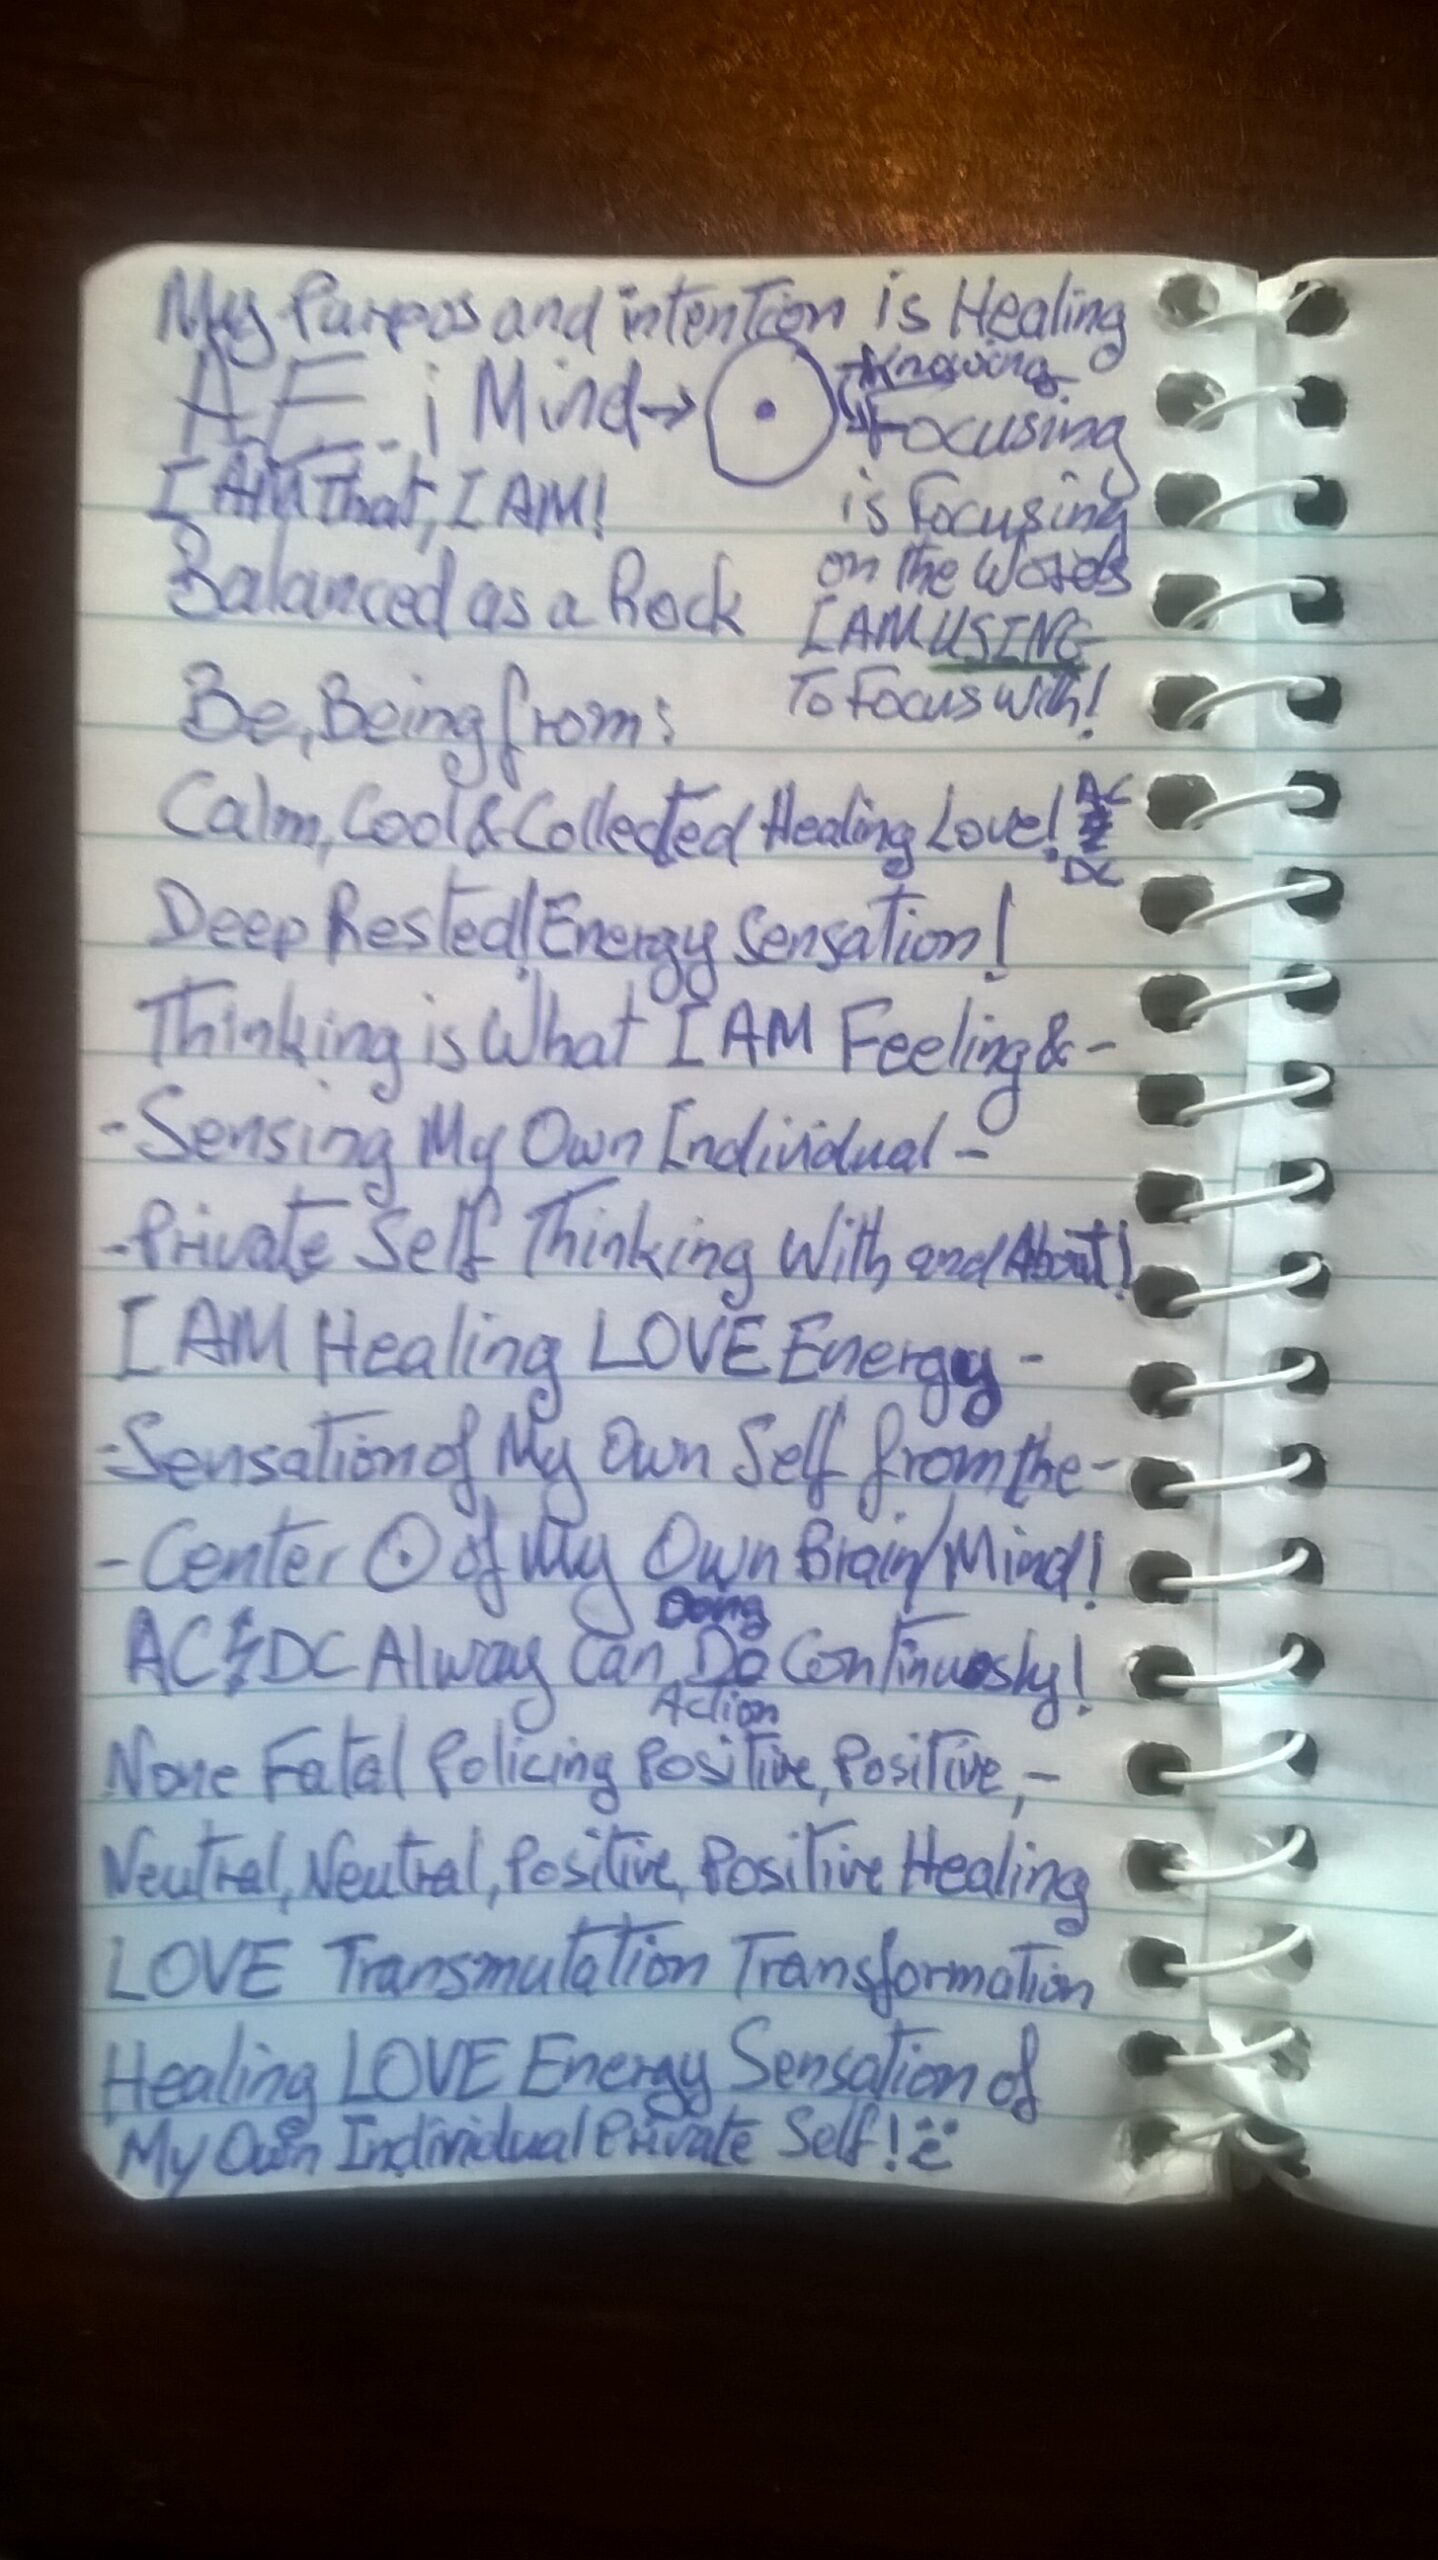 My Purpos and intention is Healing
A.E. i Mind→ ⊙ Knowing
Focusing
is Focusing
on the Words
I AM USING
To Focus With!
I AM That, I AM!
Balanced as a Rock
Be, Being from:
Calm, Cool & Collected Healing Love! AC
DC
Deep Rested! Energy Sensation!
Thinking is What I AM Feeling & -
- Sensing My Own Individual -
- Private Self Thinking With and About!
I AM Healing LOVE Energy -
- Sensation of My Own Self from the -
- Center ⊙ of My Own Brain/Mind!
Doing
AC⚡DC Alway Can Do Continuosly!
Action
None Fatal Policing Positive, Positive, -
Neutral, Neutral, Positive, Positive Healing
LOVE Transmutation Transformation
Healing LOVE Energy Sensation of
My Own Individual Private Self!